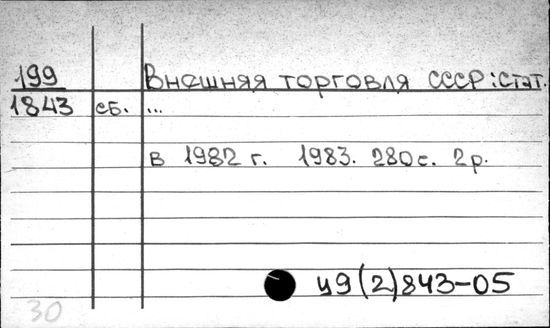 199 Внешняя торговля СССР: Стат.
1843 сб. ...
в 1982 г. 1983. 280 с. 2 р.
у9(2)843-05
30